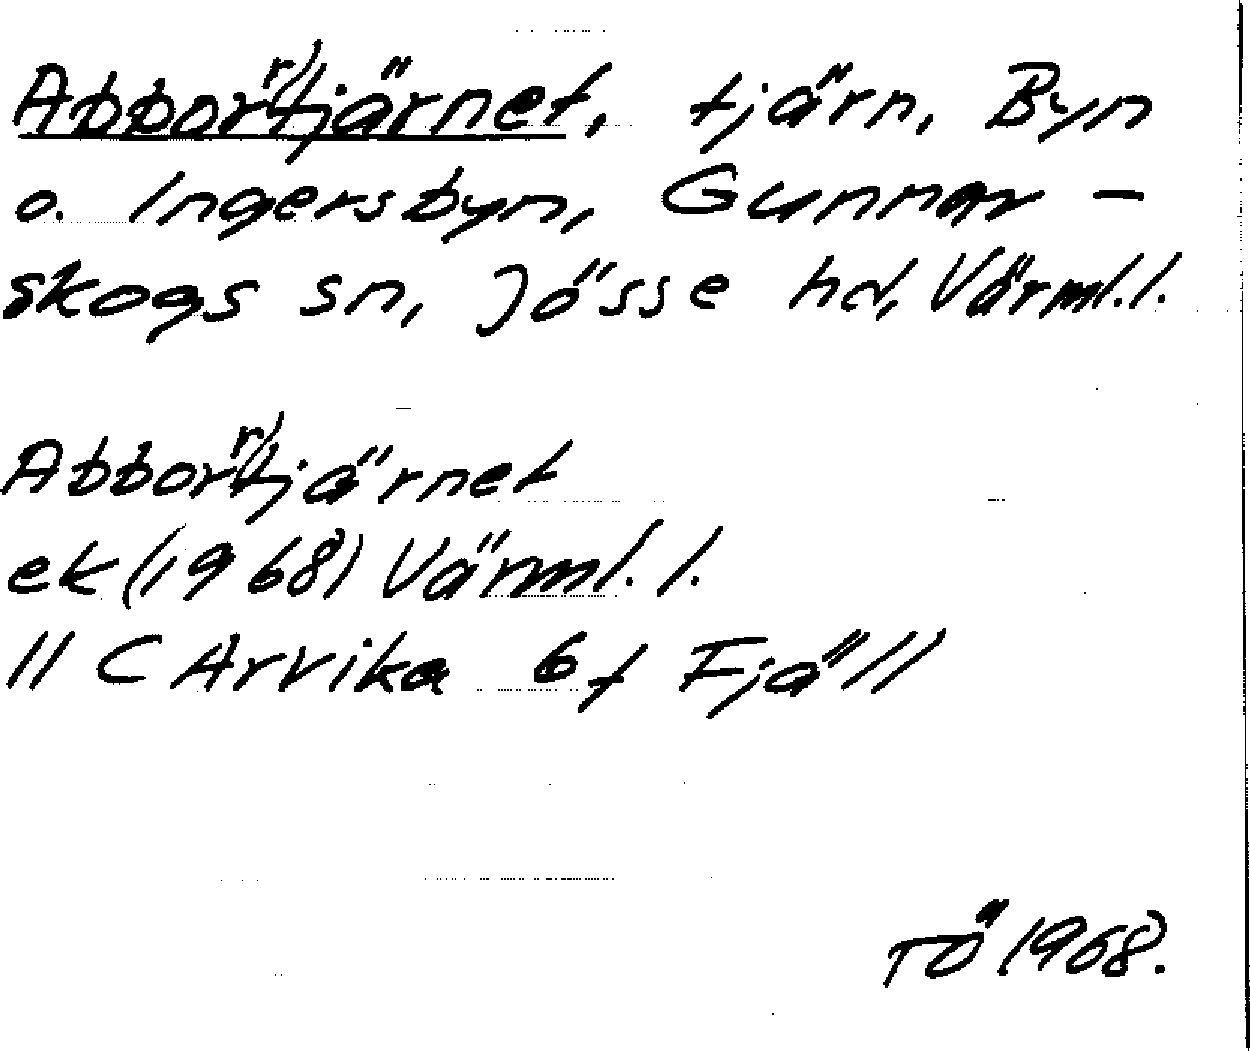 Abborrtjärnet, tjärn, Byn
o. Ingersbyn, Gunnar-
skogs sn, Jösse hd, Värml. l.
Abborrtjärnet
ek (1968) Värml. l.
11 C Arvika 6 f Fjäll
TÖ 1968.